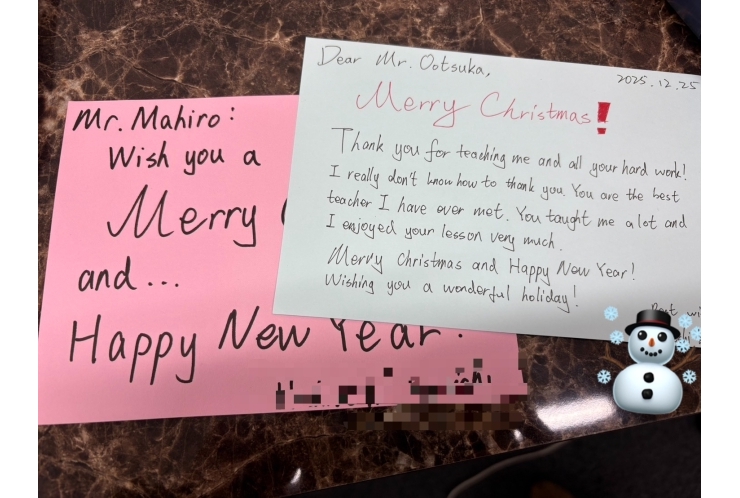 Mr. Mahiro:
Wish you a
Merry
and...
Happy New Year!
Dear Mr. Ootsuka,
2025.12.25
Merry Christmas!
Thank you for teaching me and all your hard work!
I really don't know how to thank you. You are the best
teacher I have ever met. You taught me a lot and
I enjoyed your lesson very much.
Merry Christmas and Happy New Year!
Wishing you a wonderful holiday!